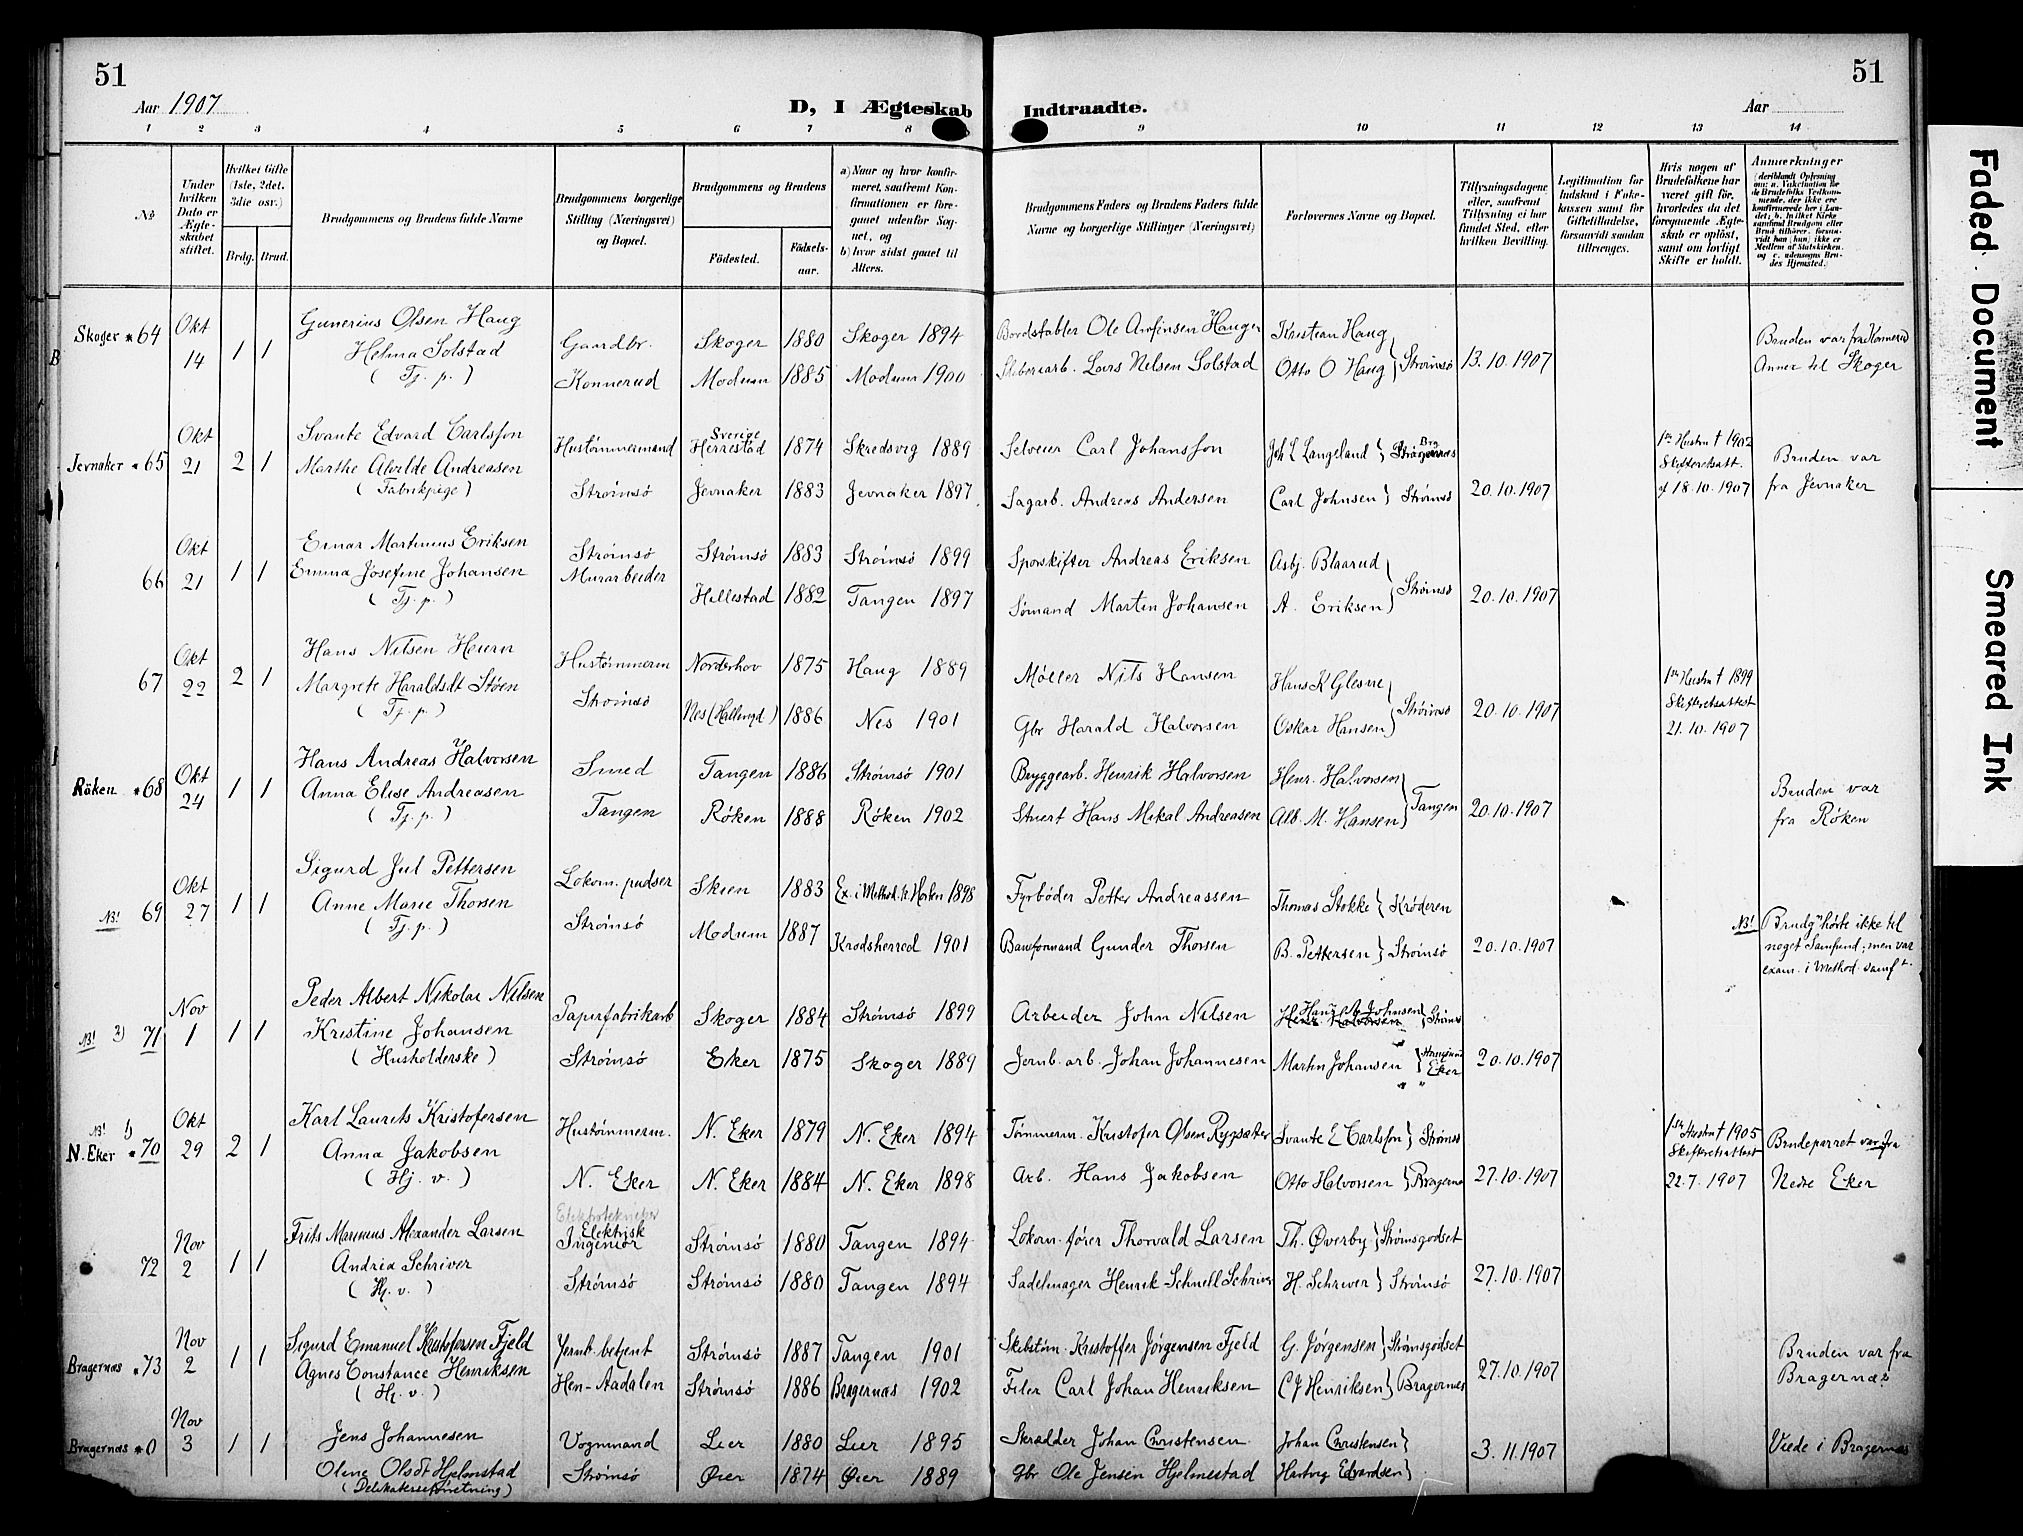 51
51
Aar 1907
D, I Ægteskab Indtraadte.
Aar
1 2 3 4 5 6 7 8 9 10 11 12 13 14
No
Under hvilken Dato er Ægteskabet stiftet.
Hvilket Gifte (1ste, 2det, 3die osv.)
Brdg. Brud.
Brudgommens og Brudens fulde Navne
Brudgommens borgerlige Stilling (Næringsvei) og Bopæl.
Brudgommens og Brudens
Födested.
Födselsaar.
a) Naar og hvor konfirmeret, saafremt Konfirmationen er foregaaet udenfor Sognet, og
b) hvor sidst gaaet til Alters.
Brudgommens Faders og Brudens Faders fulde Navne og borgerlige Stillinger (Næringsvei)
Forlovernes Navne og Bopæl.
Tillysningsdagene eller, saafremt Tillysning ei har fundet Sted, efter hvilken Bevilling.
Legitimation for Indskud i Enkekassen samt for Giftetilladelse, forsaavidt saadan tiltrænges.
Hvis nogen af Brudefolkene har været gift før, hvorledes da det foregaaende Ægteskab er oplöst, samt om lovligt Skifte er holdt.
Anmærkninger
(deriblandt Oplysning om: a. Vaccination for de Brudefolks Vedkommende, der ikke ere konfirmerede her i Landet; b. hvilket Kirkesamfund Brudgom eller Brud tilhører, forsaavidt han (hun) ikke er Medlem af Statskirken, og c. udensogns Brudes Hjemsted.)
Skoger * 64 Okt 14 1 1 Gunerius Olsen Haug Gaardbr. Skoger 1880 Skoger 1894 Bordstabler Ole Amfinsen Hauger Kristian Haug
Helma Solstad (Tj. p.) Konnerud Modum 1885 Modum 1900 Sliberiarb. Lars Nelsen Solstad Otto O Haug } Strømsø 13.10.1907 Bruden var fra Konnerud Annex til Skoger
Jevnaker * 65 Okt 21 2 1 Svante Edvard Carlsson Hustømmermand Sverige Herrestad 1874 Skredsvig 1889 Selveier Carl Johansson Joh L Langeland } Bragernæs 1ste Hustru † 1902
Marthe Alvilde Andreasen (Fabrikpige) Strømsø Jevnaker 1883 Jevnaker 1897 Sagarb. Andreas Andersen Carl Johnsen } Strømsø 20.10.1907 Skifteretsatt. af 18.10.1907 Bruden var fra Jevnaker
66 Okt 21 1 1 Einar Martinius Eriksen Strømsø Murarbeider Strømsø 1883 Strømsø 1899 Sporskifter Andreas Eriksen Asbj. Blaarud
Emma Josefine Johansen (Tj. p.) Hillestad 1882 Tangen 1897 Sømand Martin Johansen A. Eriksen } Strømsø 20.10.1907
67 Okt 22 2 1 Hans Nilsen Hiurn Hustømmerm Norderhov 1875 Haug 1889 Møller Nils Hansen Hans K Glesne 1ste Hustru † 1899
Margrete Haraldsdt Støen (Tj. p.) Strømsø Nes (Hallingd) 1886 Nes 1901 Gbr Harald Halvorsen Oskar Hansen } Strømsø 20.10.1907 Skifteretsattest 21.10.1907
Röken * 68 Okt 24 1 1 Hans Andreas Halvorsen Smed Tangen 1886 Strømsø 1901 Bryggearb. Henrik Halvorsen Henr. Halvorsen
Anna Elise Andreasen (Tj. p.) Tangen Røken 1888 Røken 1902 Stuert Hans Mikal Andreasen Alb. M. Hansen } Tangen 20.10.1907 Bruden var fra Røken
NB! 69 Okt 27 1 1 Sigurd Jul Pettersen Lokom. pudser Skien 1883 Ex. i Method. k. Horten 1898 Fyrbøder Petter Andreassen Thomas Stokke } Krøderen
Anne Marie Thorsen (Tj. p.) Strømsø Modum 1887 Krødsherred 1901 Baneformand Gunder Thorsen B. Pettersen } Strømsø 20.10.1907 NB! Brudg hørte ikke til noget Samfund; men var exam. i Method. samft.
NB! 2) 71 Nov 1 1 1 Peder Albert Nikolai Nilsen Papirfabrikarb Skoger 1884 Strømsø 1899 Arbeider John Nilsen Henr. Halvorsen Hans A Johnsen } Strømsø
Kristine Johansen (Husholderske) Strømsø Eker 1875 Skoger 1889 Jernb. arb. Johan Johannesen Martin Johansen } Eker 20.10.1907
N. Eker NB! 1) * 70 Okt 29 2 1 Karl Laurits Kristofersen Hustømmerm. N. Eker 1879 N. Eker 1894 Tømmerm. Kristofer Olsen Rygsæter Svante E Carlsson } Strømsø 1ste Hustru † 1905
Anna Jakobsen (Hj. v.) N. Eker N. Eker 1884 N. Eker 1898 Arb. Hans Jakobsen Otto Halvorsen } Bragernæs 27.10.1907 Skifteretsattest 22.7.1907 Brudeparret var fra Nedre Eker
72 Nov 2 1 1 Frits Marinius Alexander Larsen Elektrotekniker Elektrisk Ingeniør Strømsø 1880 Tangen 1894 Lokom. fører Thorvald Larsen Th. Øverby } Strømsgodset
Andrea Schriver (Hj. v.) Strømsø Strømsø 1880 Tangen 1894 Sadelmager Henrik Schnell Schriver H. Schriver } Strømsø 27.10.1907
Bragernæs * 73 Nov 2 1 1 Sigurd Emanuel Kristofersen Fjeld Jernb. betjent Strømsø 1887 Tangen 1901 Skibstøm. Kristoffer Jørgensen Fjeld G. Jørgensen } Strømsgodset
Agnes Constance Henriksen (Hj. v.) Hen-Aadalen Strømsø 1886 Bragernæs 1902 Filer Carl Johan Henriksen C J Henriksen } Bragernæs 27.10.1907 Bruden var fra Bragernæs
Bragernæs * 0 Nov 3 1 1 Jens Johannesen Vognmand Lier 1880 Lier 1895 Skrædder Johan Christensen Johan Christensen }
Oline Olsdt Hjelmstad (Delikatesseforretning) Strømsø Øier 1874 Øier 1889 Gbr Ole Jensen Hjelmestad Hartvig Edvardsen } 3.11.1907 Viede i Bragernæs
Faded Document
Smeared Ink